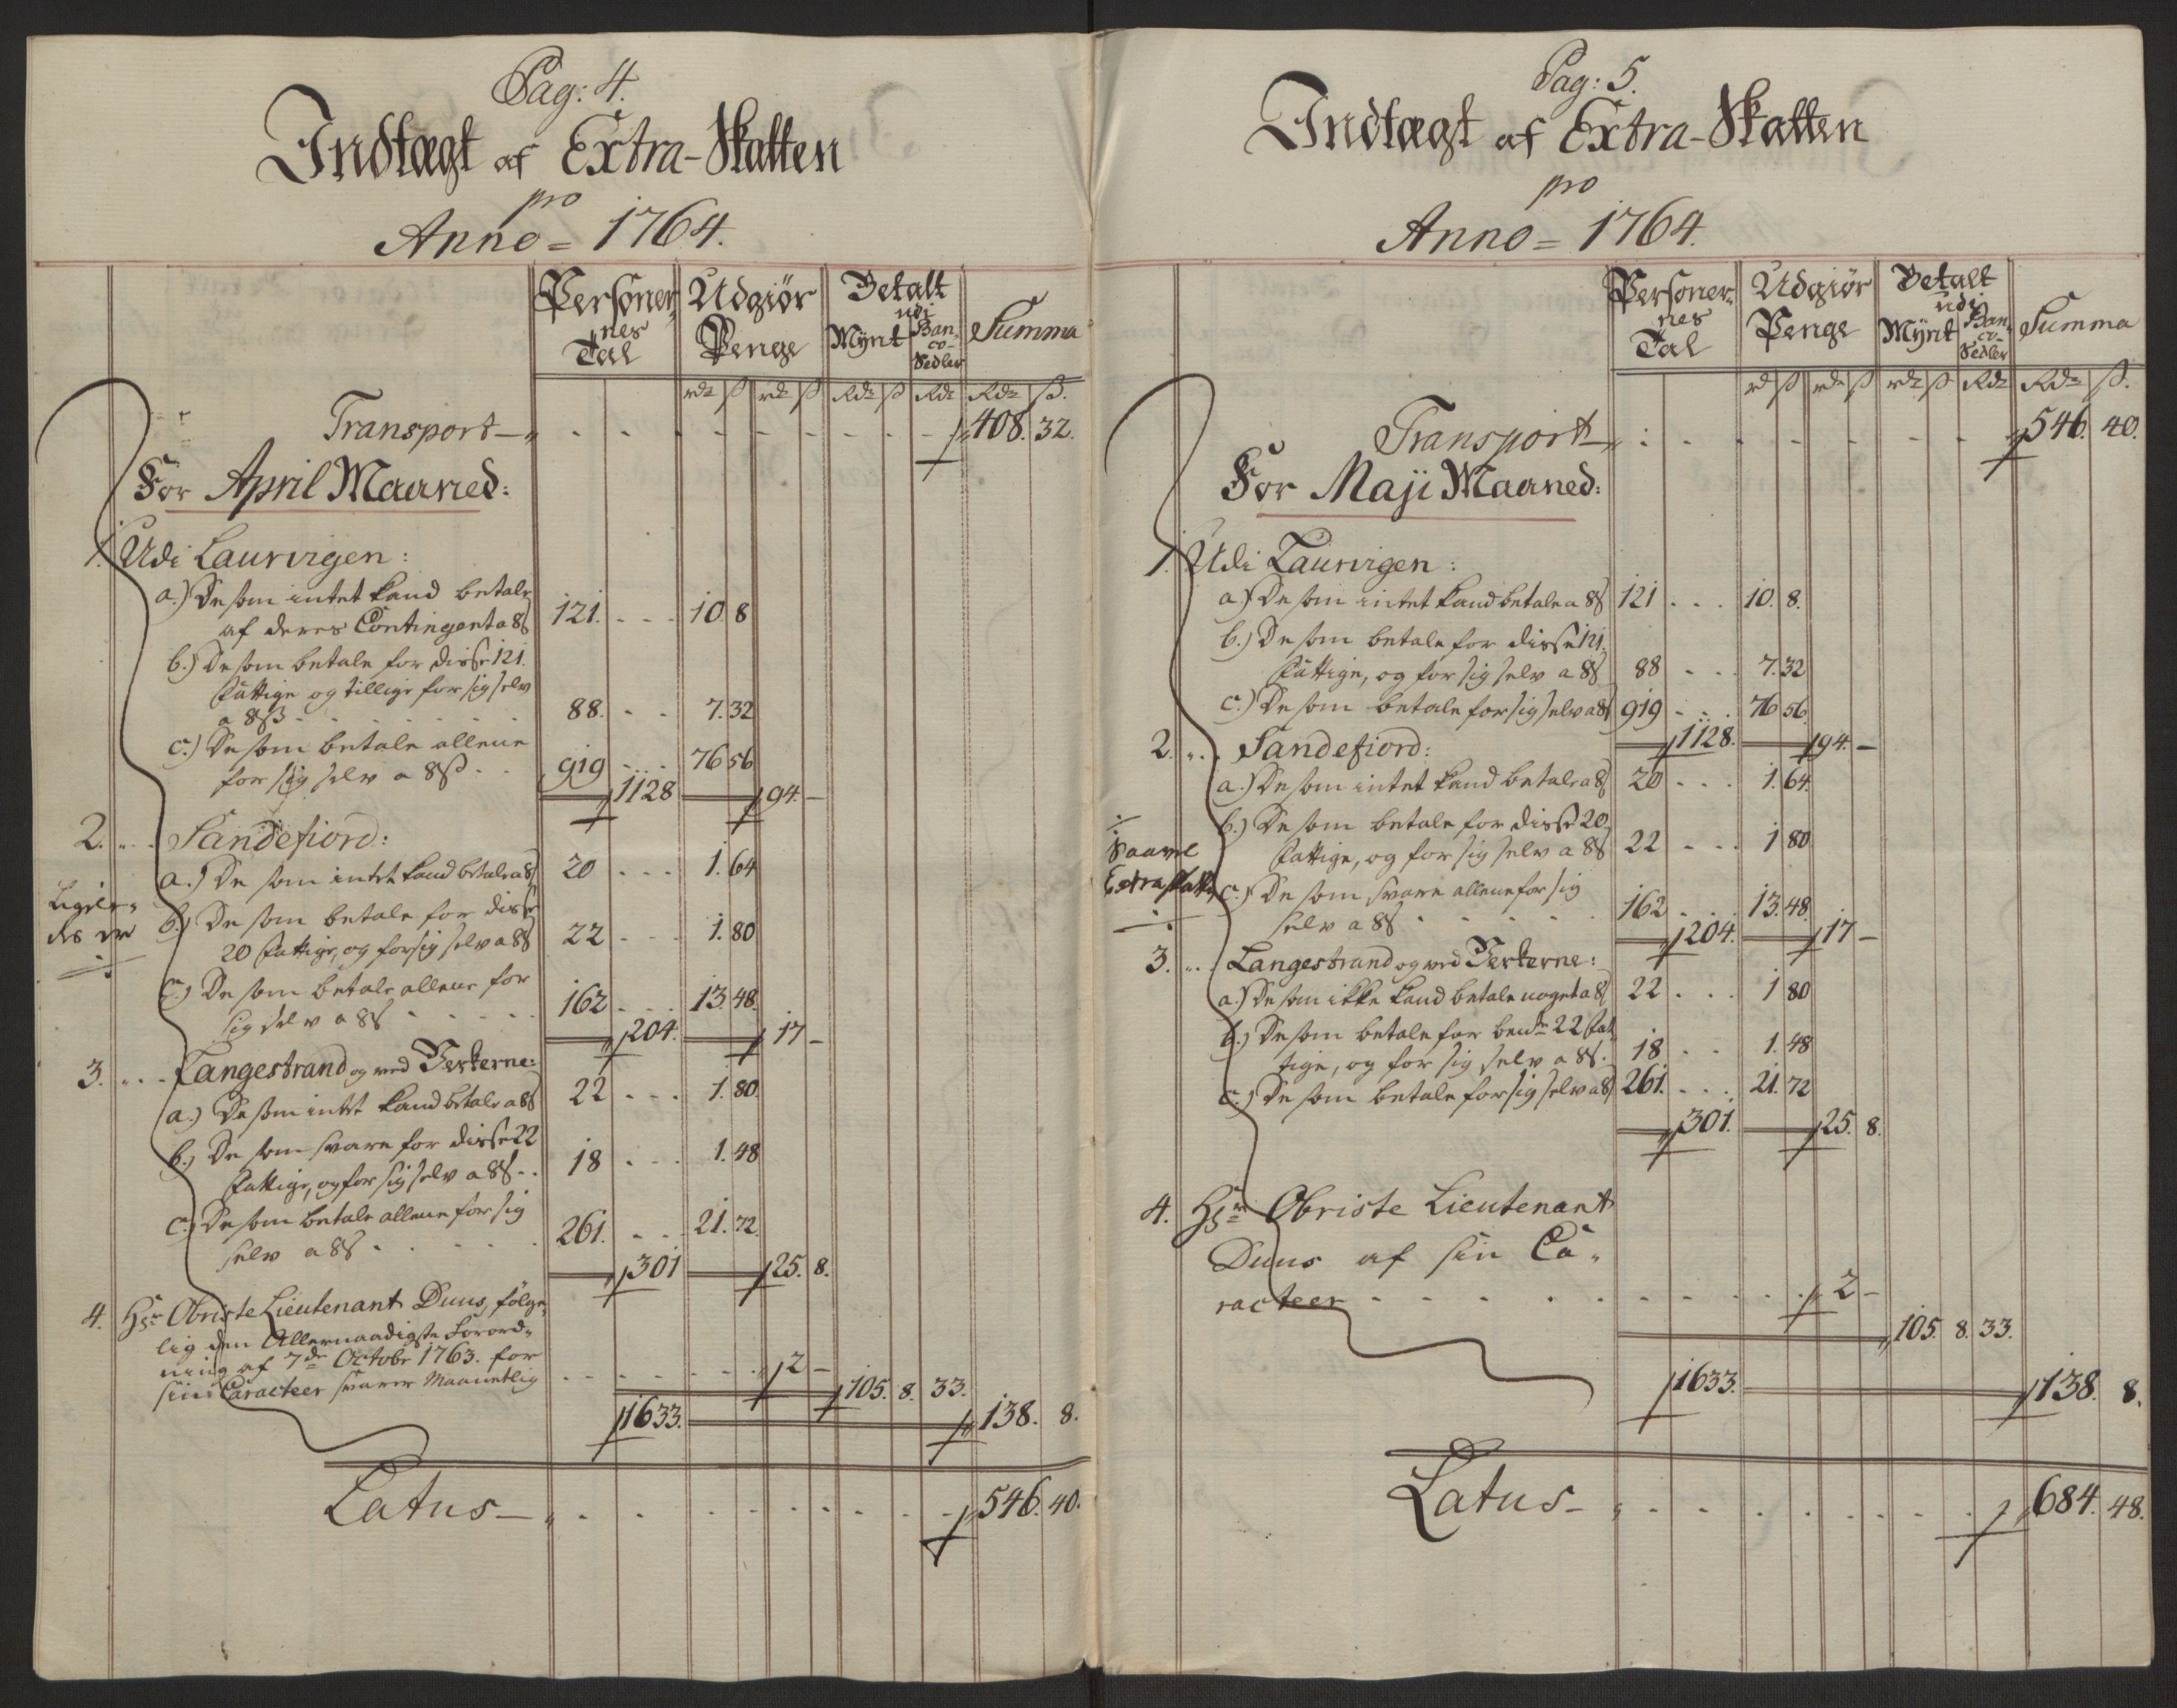 Pag: 4.
Indtægt af Extra-Skatten
pro
Anno = 1764.
Personer„ Udgiør Betalt
nes udi
Tal Penge Mÿnt Ban„ Summa
co-
Sedler
rdr ß rdr ß Rdr ß Rdr Rdr ß.
Transport — 408. 32.
For April Maaned:
1. Udi Laurvigen:
a.) De som intet kand betale
af deres Contingent a 8ß 121. 10 8
b.) De som betale for disse 121.
Fattige og tillige for sig selv
a 8ß 88. 7. 32
c.) De som betale allene
for sig selv a 8ß 919 76 56
1128 94. —
2. Sandefiord:
a.) De som intet kand betale a 8ß 20 1. 64
Ligele„
des er
b.) De som betale for disse
20 Fattige, og for sig selv a 8ß 22 1. 80
c.) De som betale allene for
sig selv a 8ß 162 13. 48.
204. 17 —
3. Langestrand og ved Verkerne:
a.) De som intet kand betale a 8ß 22 1. 80.
b.) De som svare for disse 22
Fattige, og for sig selv a 8ß 18 1. 48
c.) De som betale allene for sig
selv a 8ß 261. 21. 72.
301 25. 8.
4. Hr Obriste Lieutenant Duus, følge„
lig den Allernaadigste Forord„
ning af 7de Octobr 1763. for
sin Caracteer svarer Maanetlig 2 —
105. 8. 33.
1633. 138. 8.
Latus — 546. 40.
Pag: 5.
Indtægt af Extra-Skatten
pro
Anno = 1764.
Personer„ Udgiør Betalt
nes udi
Tal Penge Mÿnt Ban„ Summa
co-
Sedler
rd ß rdr ß rdr ß Rdr Rdr ß.
Transport — 546. 40.
For Maji Maaned:
1. Udi Laurvigen:
a.) De som intet kand betale a 8ß 121 10. 8.
b.) De som betale for disse 121.
Fattige, og for sig selv a 8ß 88 7. 32
c.) De som betale for sig selv a 8ß 919 76 56.
1128. 94. —
2. Sandefiord:
a.) De som intet kand betale a 8ß 20 1. 64.
b.) De som betale for disse 20
Fattige, og for sig selv a 8ß 22 1 80
c.) De som svare allene for sig
selv a 8ß 162 13. 48.
204. 17 —
3. Langestrand og ved Verkerne:
a.) De som ikke kand betale noget a 8ß 22 1 80
b.) De som betale for bemte 22 Fat„
tige, og for sig selv a 8ß. 18 1. 48
c.) De som betale for sig selv a 8ß 261. 21. 72
301. 25. 8.
4. Hr Obriste Lieutenant
Duus af sin Ca„
racteer 2 —
105. 8. 33.
1633. 138. 8.
Latus — 684. 48.